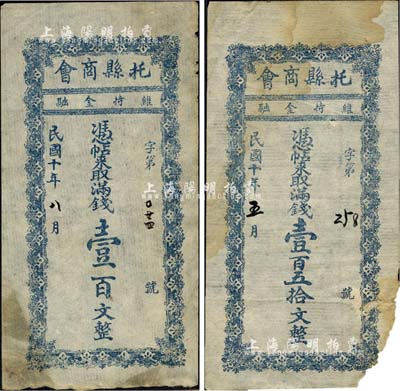 上海陽明拍賣
會商縣托
融金持維
字第
憑帖來取滿錢壹百文整
號
民國十年八月
上海陽明拍賣
會商縣托
融金持維
字第258號
憑帖來取滿錢壹百五拾文整
民國十年五月